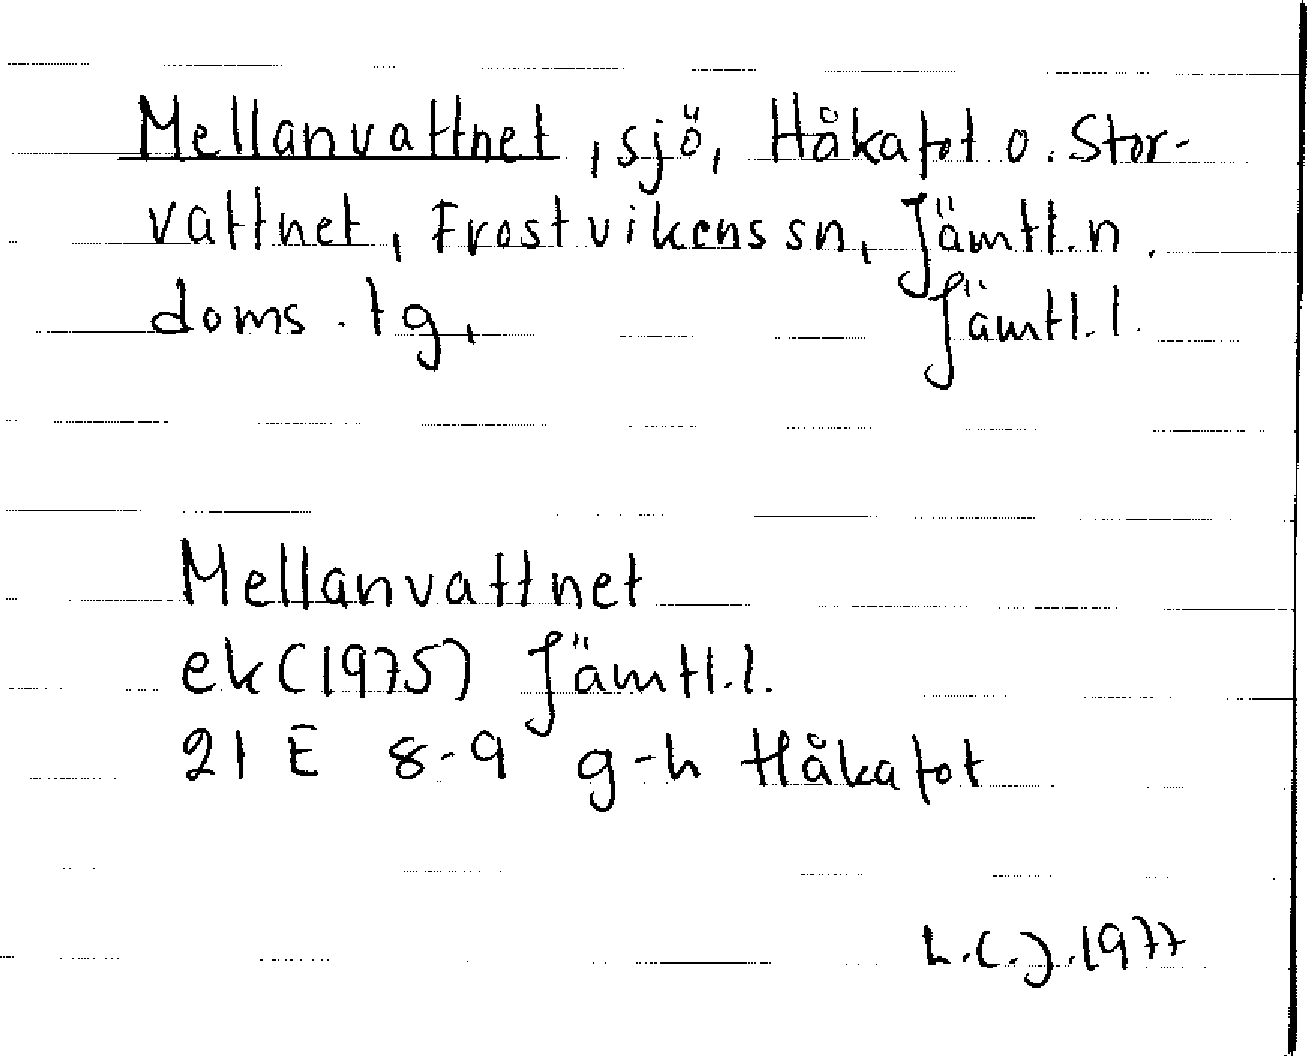 Mellanvattnet, sjö, Håkafot o. Stor-
vattnet, Frostvikens sn, Jämtl. n.
doms. tg, Jämtl. l.
Mellanvattnet
ek (1975) Jämtl. l.
21 E 8-9 g-h Håkafot
L.C.J. 1977